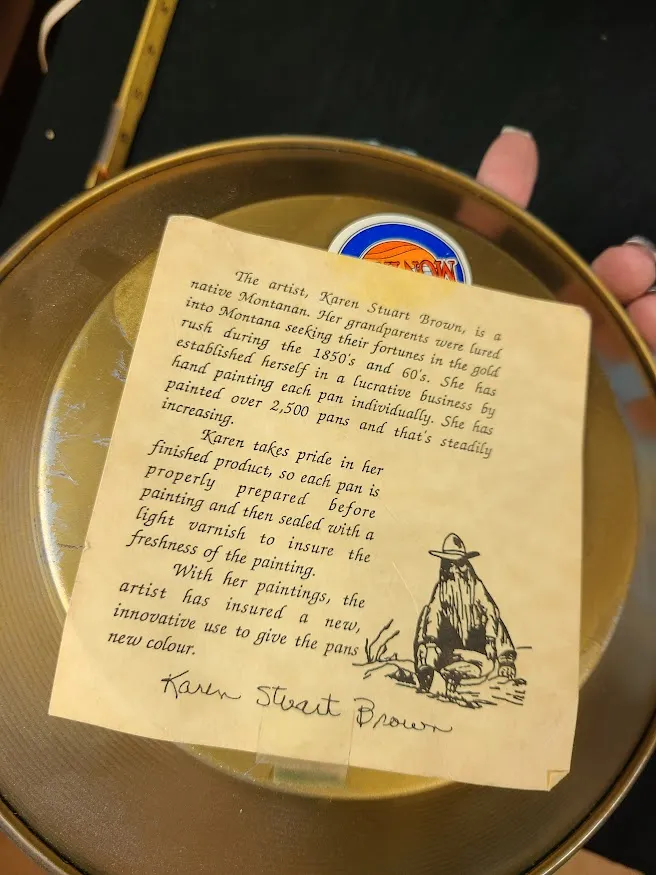 The artist, Karen Stuart Brown, is a
native Montanan. Her grandparents were lured
into Montana seeking their fortunes in the gold
rush during the 1850's and 60's. She has
established herself in a lucrative business by
hand painting each pan individually. She has
painted over 2,500 pans and that's steadily
increasing.
Karen takes pride in her
finished product, so each pan is
properly prepared before
painting and then sealed with a
light varnish to insure the
freshness of the painting.
With her paintings, the
artist has insured a new,
innovative use to give the pans
new colour.
Karen Stuart Brown